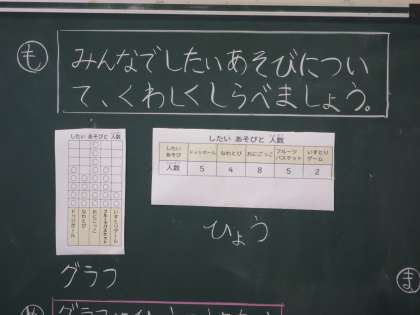 も
みんなでしたいあそびについ
て、くわしくしらべましょう。
したい あそびと 人数
ドッジボール
なわとび
おにごっこ
フルーツバスケット
いすとりゲーム
グラフ
したい あそびと 人数
したい あそび ドッジボール なわとび おにごっこ フルーツ バスケット いすとり ゲーム
人数 5 4 8 5 2
ひょう
ま